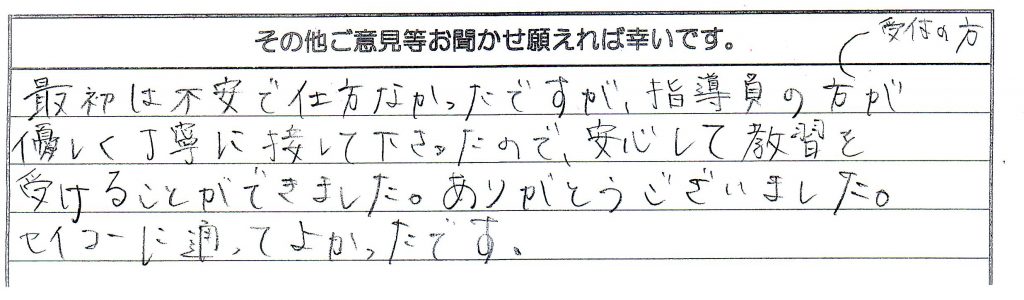 その他ご意見等お聞かせ願えれば幸いです。
受付の方
最初は不安で仕方なかったですが、指導員の方が
優しく丁寧に接して下さったので、安心して教習を
受けることができました。ありがとうございました。
セイコーに通ってよかったです。